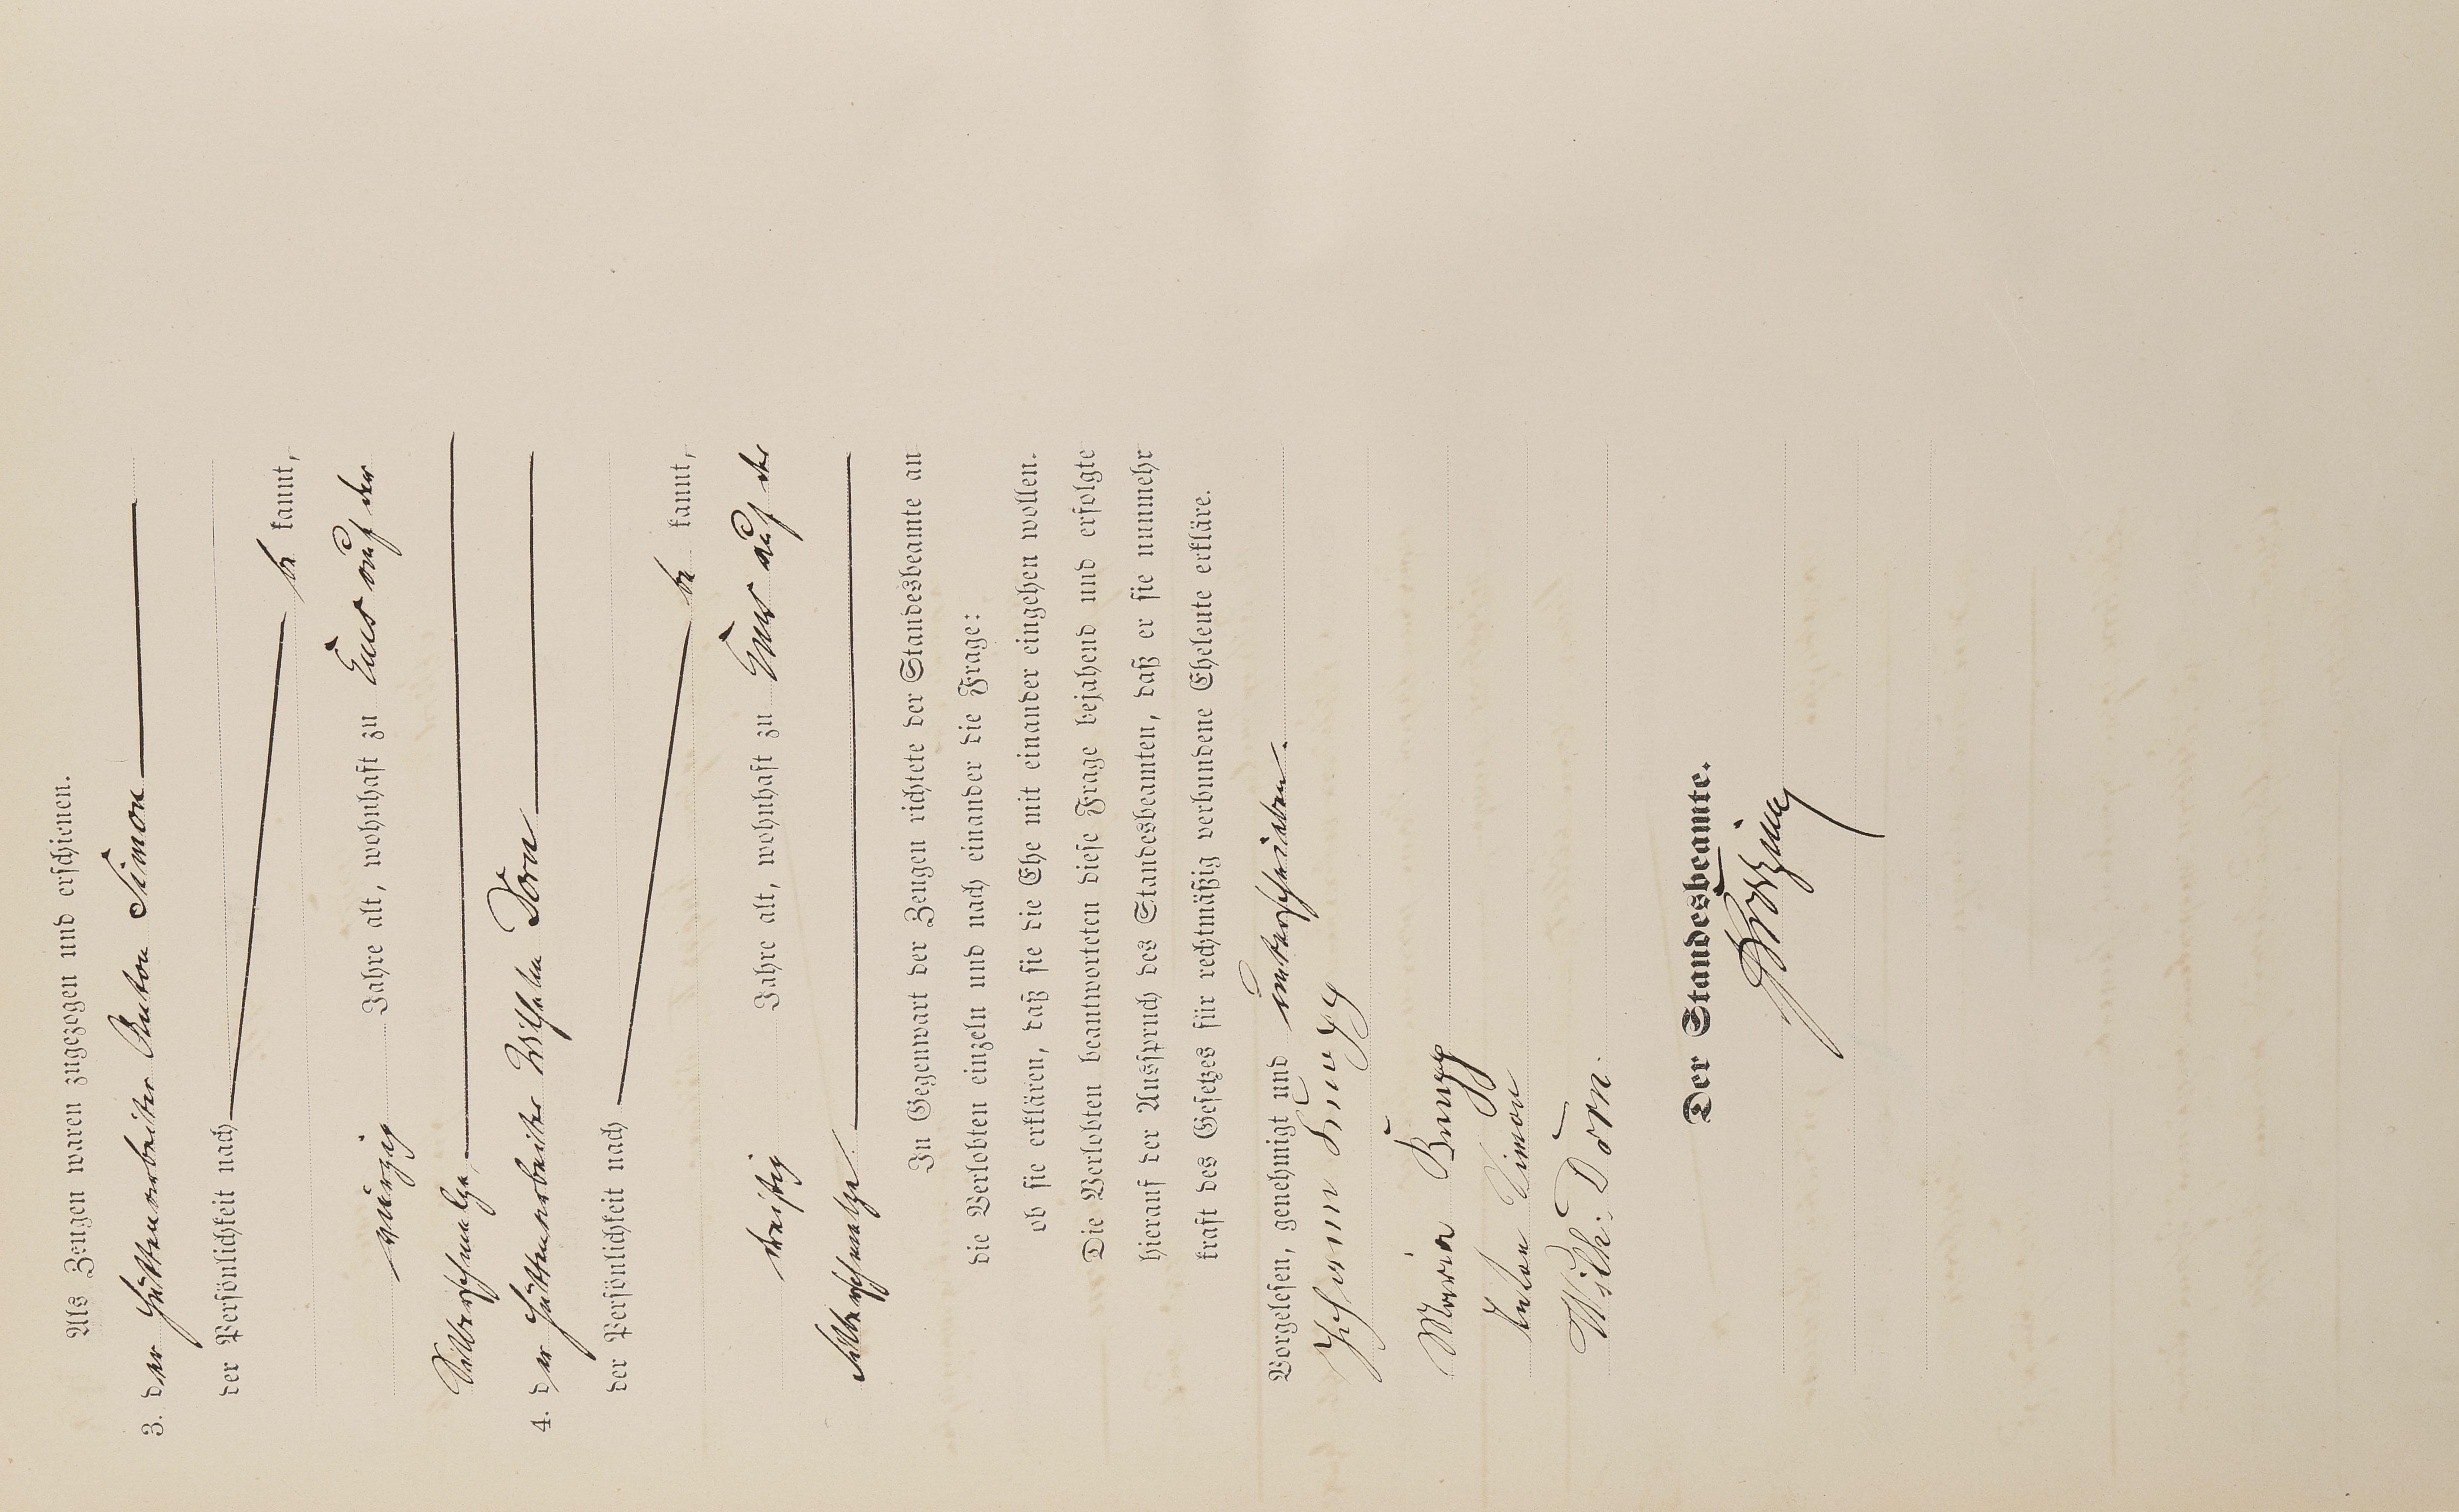 Als Zeugen waren zugezogen und erschienen.
3. der Hüttenarbeiter Anton Simon
der Persönlichkeit nach
be kannt,
vierzig Jahre alt, wohnhaft zu Ems auf der
Silberschmelze,
4. der Hüttenarbeiter Wilhelm Dorn
der Persönlichkeit nach
be kannt,
dreißig Jahre alt, wohnhaft zu Ems auf der
Silberschmelze.
In Gegenwart der Zeugen richtete der Standesbeamte an
die Verlobten einzeln und nach einander die Frage:
ob sie erklären, daß sie die Ehe mit einander eingehen wollen.
Die Verlobten beantworteten diese Frage bejahend und erfolgte
hierauf der Ausspruch des Standesbeamten, daß er sie nunmehr
kraft des Gesetzes für rechtmäßig verbundene Eheleute erkläre.
Vorgelesen, genehmigt und unterschrieben.
Maria
Anton Simon
Wilh: Dorn.
Der Standesbeamte.